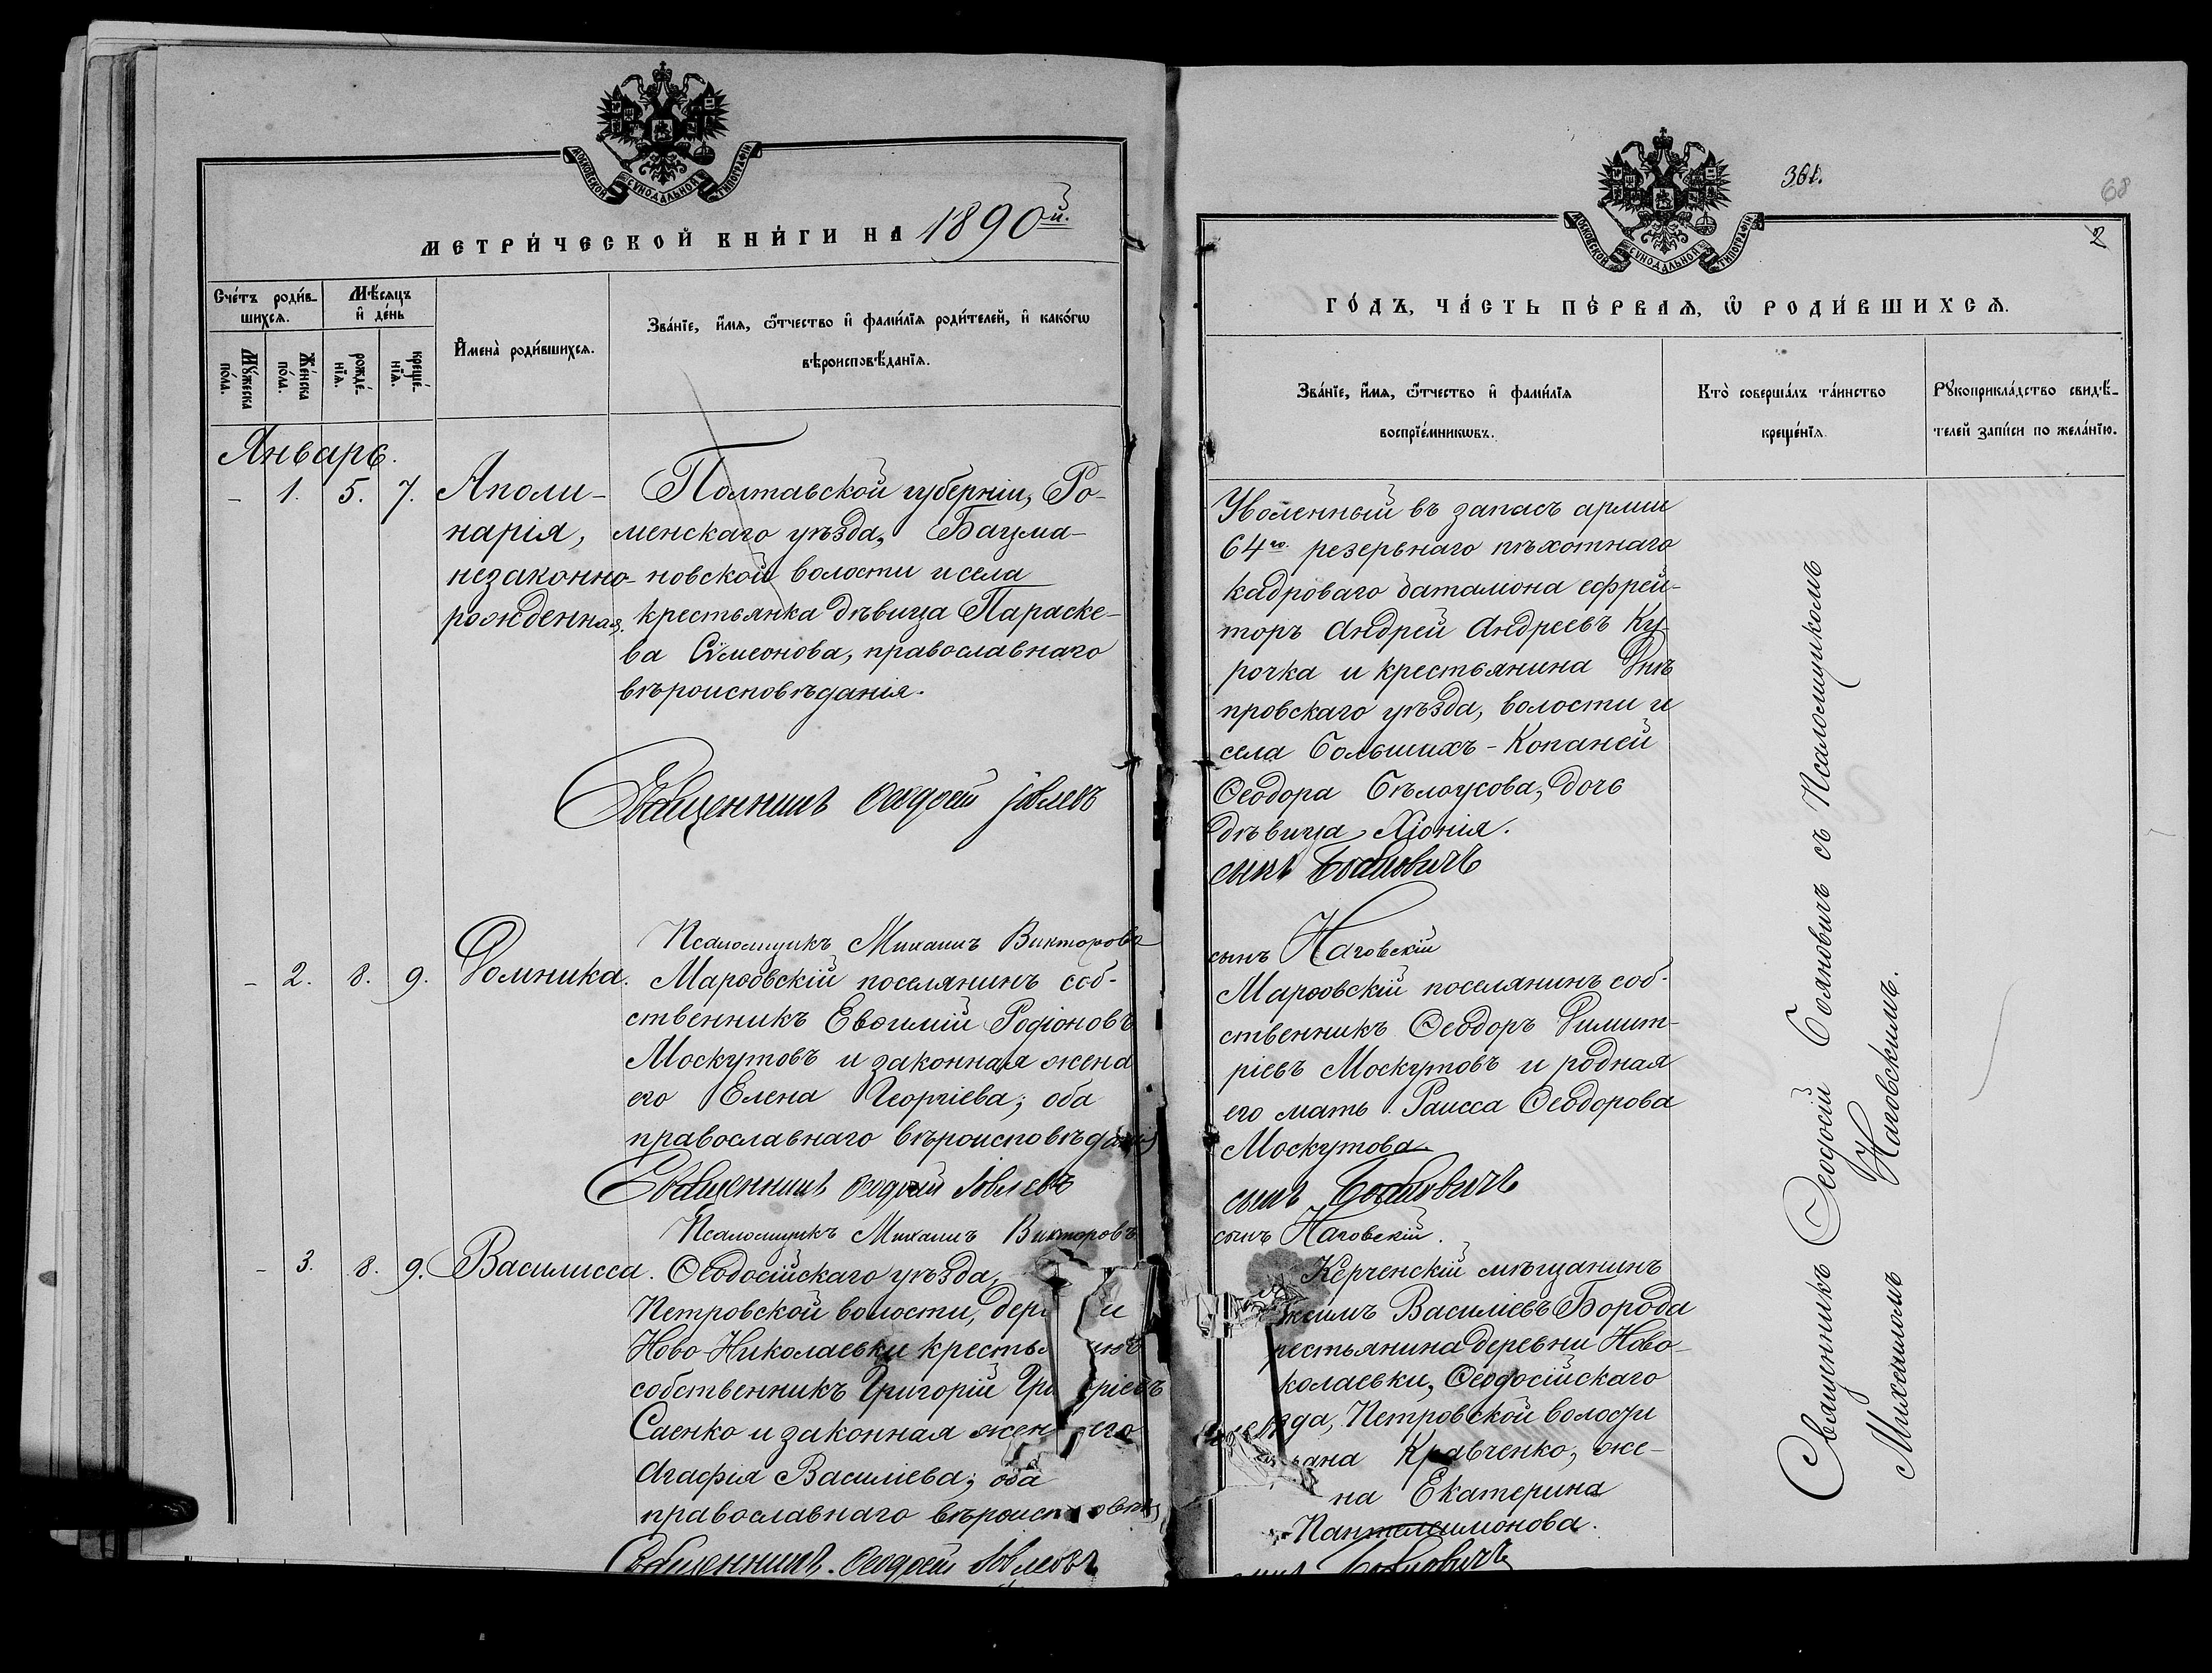 МОСКОВСКОЙ СѴНОДАЛЬНОЙ ТИПОГРАФІИ
МЕТРИ́ЧЕСКОЙ КНИ́ГИ НА 1890й.
Счетъ роди́в-
шихсѧ.
Мѣ́сѧцъ
и҆ де́нь
Мꙋ́жеска
по́ла.
Же́нска
по́ла.
рожде́-
нїѧ.
креще́-
нїѧ.
И҆мена̀ роди́вшихсѧ.
Зва́нїе, и҆́мѧ, ѻ҆́тчество и҆ фами́лїѧ роди́телей, и҆ како́гѡ
вѣроисповѣ́данїѧ.
Январь.
- 1. 5. 7.
Аполи-
нарія,
незаконно-
рожденная.
Полтавской губерніи, Ро-
менскаго уѣзда, Бацма-
новской волости и села
крестьянка дѣвица Параске-
ва Сѵмеонова, православнаго
вѣроисповѣданія.
Священникъ Ѳеодосій Іовлевъ
Псаломщикъ Михаилъ Викторовъ
- 2. 8. 9. Домника.
Марѳовскій поселянинъ соб-
ственникъ Евѳимій Родіоновъ
Москутовъ и законная жена
его Елена Георгіева; оба
православнаго вѣроисповѣданія
Священникъ Ѳеодосій Іовлевъ
Псаломщикъ Михаилъ Викторовъ
- 3. 8. 9. Василисса.
Ѳеодосійскаго уѣзда,
Петровской волости, дер и
Ново-Николаевки кресть
собственникъ Григорій Гри ріевъ
Саенко и законная жен его
Агафія Василіева; оба
православнаго
Священникъ Ѳеодосій Іовлевъ
361.
68
2
МОСКОВСКОЙ СѴНОДАЛЬНОЙ ТИПОГРАФІИ
ГО́ДЪ, ЧА́СТЬ ПЕ́РВАѦ, Ѡ҆ РОДИ́ВШИХСѦ.
Зва́нїе, и҆́мѧ, ѻ҆́тчество и҆ фами́лїѧ
воспрїе́мникѡвъ.
Кто̀ соверша́лъ та́инство
креще́нїѧ.
Рꙋкоприкла́дство свидѣ́-
телей за́писи по жела́нїю.
Уволенный въ запасъ арміи
64го резервнаго пѣхотнаго
кадроваго баталіона ефрей-
торъ Андрей Андреевъ Ку-
рочка и крестьянина Днѣ
провскаго уѣзда, волости и
села Большихъ-Копаней
Ѳеодора Бѣлоусова, дочь
дѣвица Хіонія.
сынъ Бояновичъ
сынъ Наговскій
Марѳовскій поселянинъ соб-
ственникъ Ѳеодоръ Димит-
ріевъ Москутовъ и родная
его мать Раисса Ѳеодорова
Москутова
сынъ Бояновичъ
сынъ Наговскій.
Керченскій мѣщанинъ
симъ Василіевъ Борода
рестьянина деревни Ново-
колаевки, Ѳеодосійскаго
зда, Петровской волости
ана Кравченко, же-
на Екатерина
Пантелеимонова.
сынъ Бояновичъ
Священникъ Ѳеодосій Бояновичъ съ Псаломщикомъ
Михаиломъ Наговскимъ.